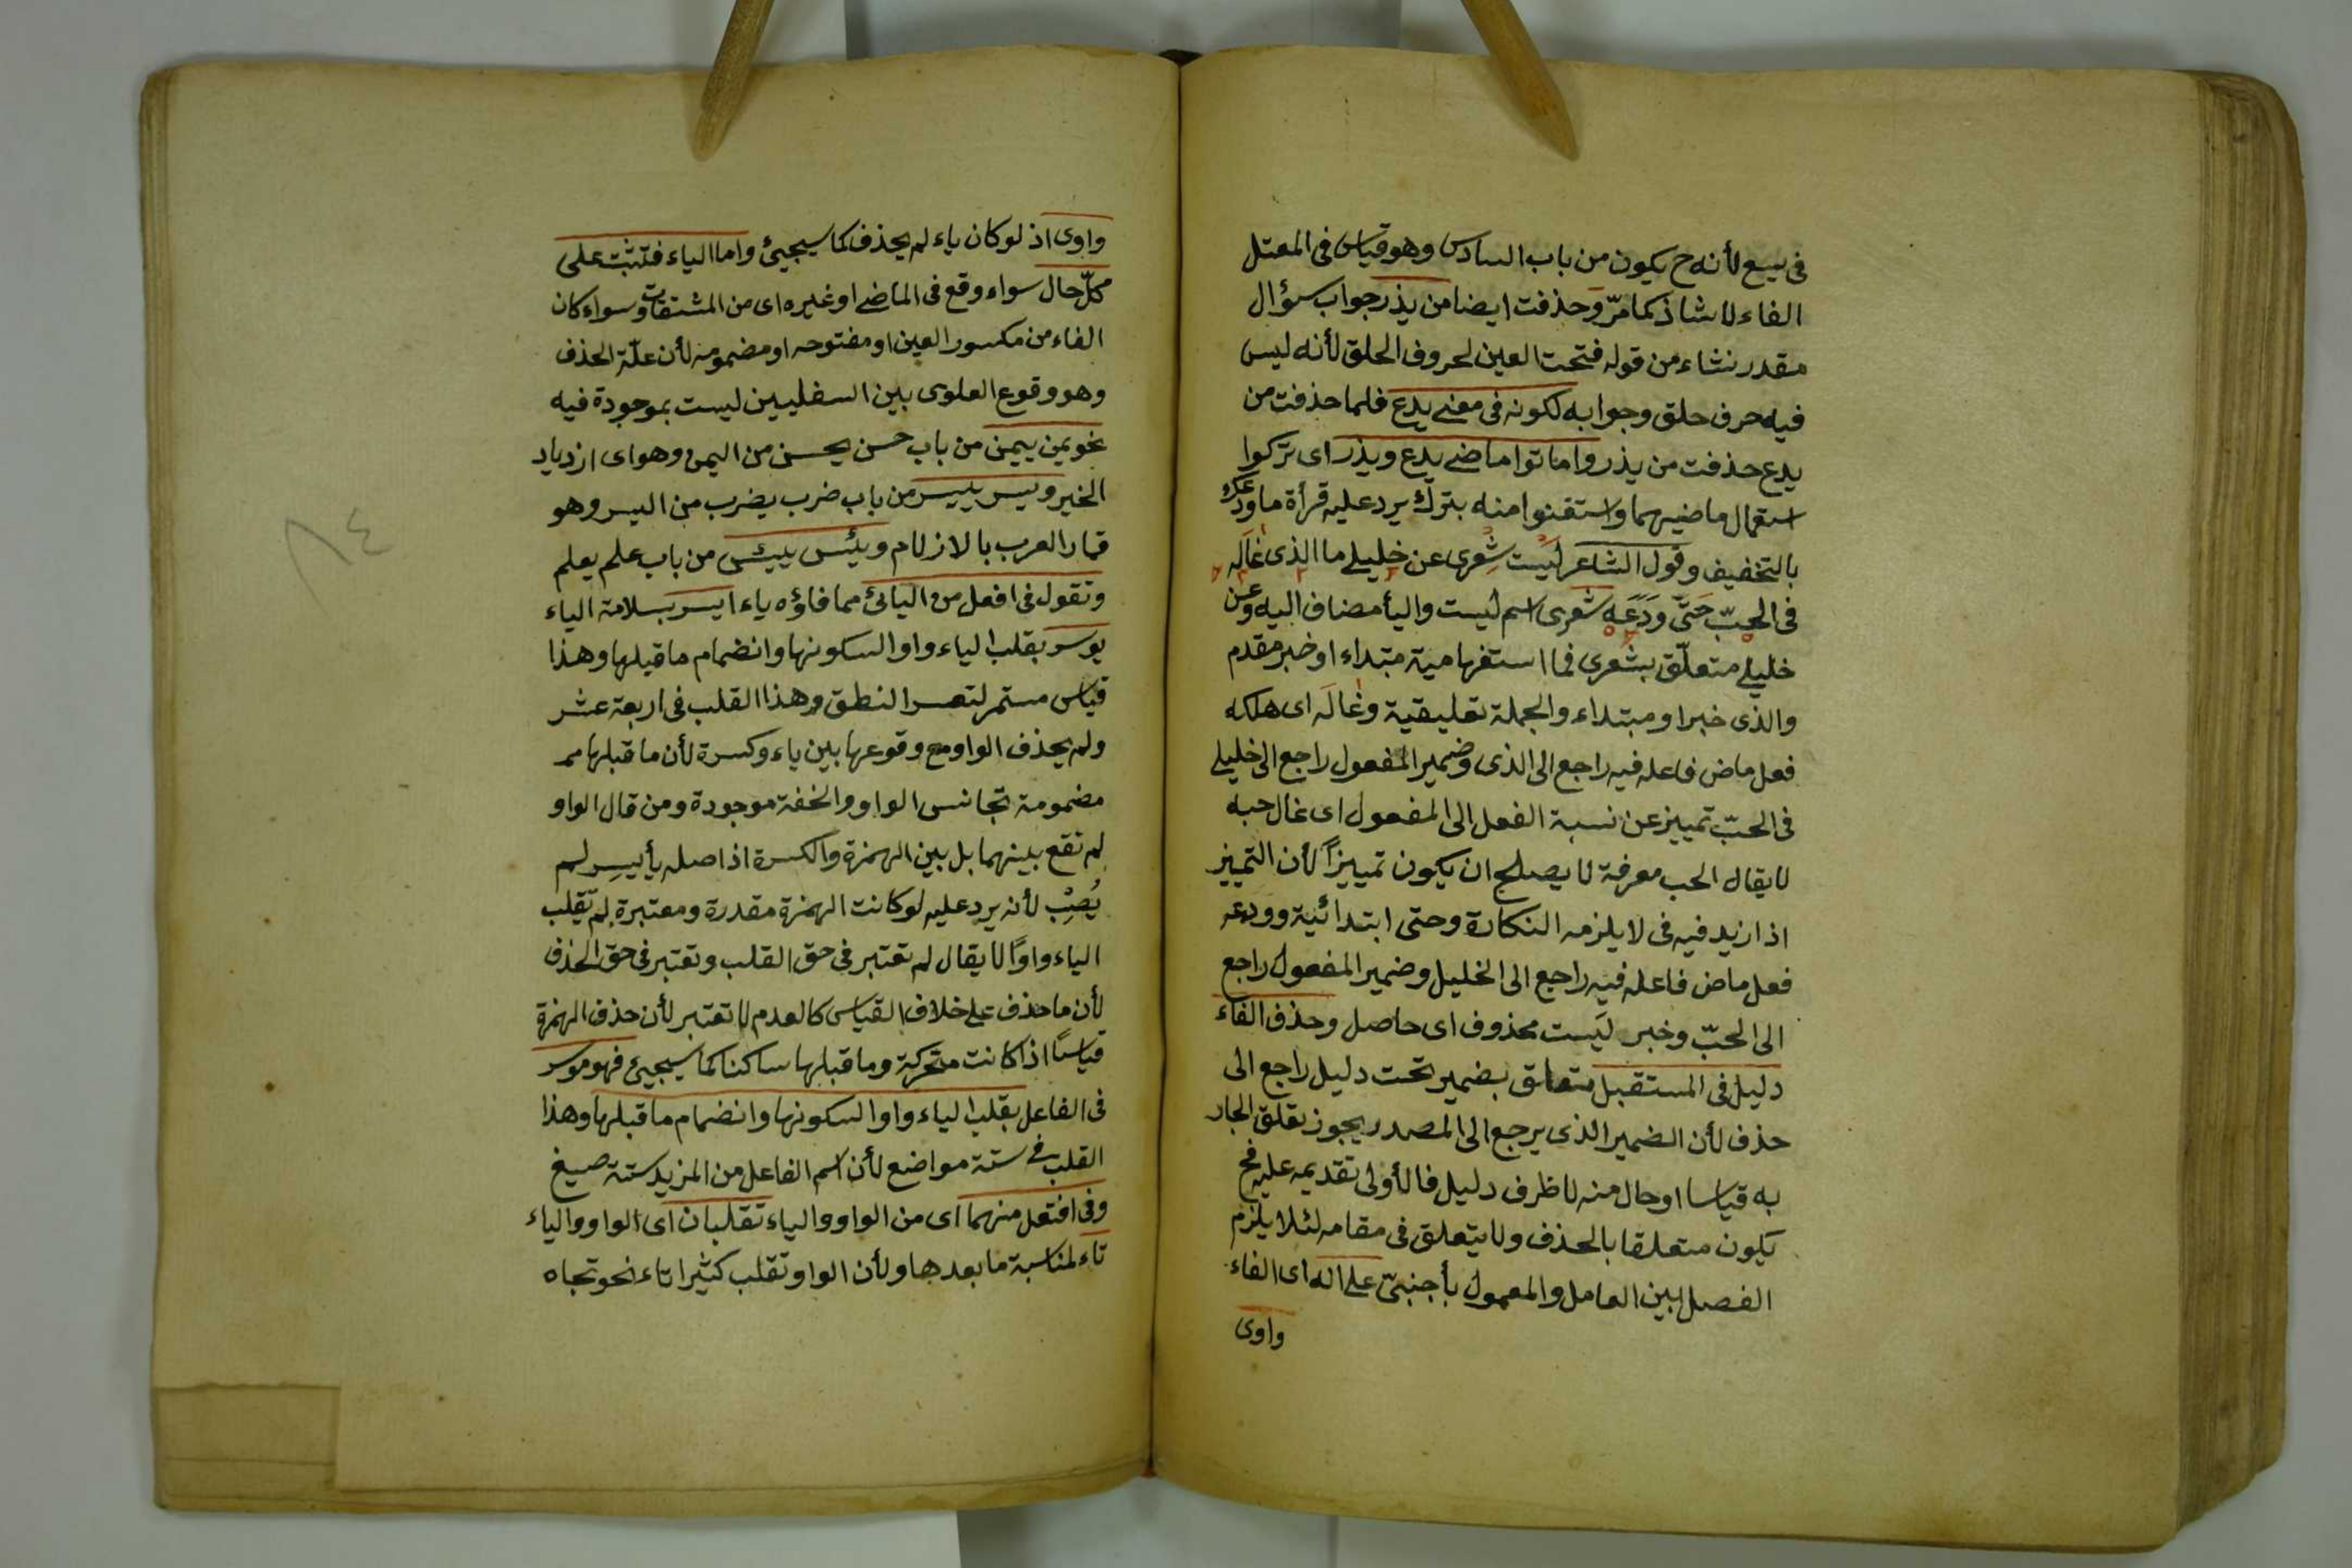 فى يسع لأنه ح يكون من باب السادس وهو قياس فى المعتل
الفاء لا شاذ كما مرّ وحذفت ايضا من يذر جواب سؤال
مقدر نشاء من قوله فتحت العين لحروف الحلق لأنه ليس
فيه حرف حلق وجوابه لكونه فى معنى يدع فلما حذفت من
يدع حذفت من يذر واماتوا ماضى يدع ويذر اى تركوا
استعمال ماضيهما واستغنوا منه بترك يرد عليه قرأة ما ودعك
بالتخفيف وقول الشاعر لَيْتَ شِعرى عن خليلى ما الذى غَالَه
فى الحبّ حَتّى وَدَعَه شعرى اسم ليت واليأ مضاف اليه وعن
خليلى متعلّق بشعرى فما استفهامية مبتداء او خبر مقدم
والذى خبر او مبتداء والجملة تعليقية وغَالَه اى هلكه
فعل ماض فاعله فيه راجع الى الذى وضمير المفعول راجع الى خليلى
فى الحبّ تمييز عن نسبة الفعل الى المفعول اى غال حبه
لا يقال الحب معرفة لا يصلح ان يكون تمييزاً لأن التمييز
اذا زيد فيه فى لا يلزمه النكارة وحتى ابتدائية وودعه
فعل ماض فاعله فيه راجع الى الخليل وضمير المفعول راجع
الى الحبّ وخبر لَيت محذوف اى حاصل وحذف الفاء
دليل فى المستقبل متعلق بضمير تحت دليل راجع الى
حذف لأن الضمير الذى يرجع الى المصدر يجوز تعلق الجار
به قياسا او حال منه لا ظرف دليل فالأولى تقديمه عليه فح
يكون متعلقا بالحذف ولا يتعلق فى مقامه لئلا يلزم
الفصل بين العامل والمعمول بأجنبىّ على اله اى الفاء
واوى
واوى اذ لو كان ياء لم يحذف كما سيجيئ واما الياء فتثبت على
كلّ حال سواء وقع فى الماضى او غيره اى من المشتقات وسواء كان
الفاء من مكسور العين او مفتوحه او مضمومه لأن علّة الحذف
وهو وقوع العلوى بين السفليين ليست بموجودة فيه
نحو يمن ييمن من باب حسن يحسن من اليمن وهو اى ازدياد
الخير ويسر ييسر من باب ضرب يضرب من اليسر وهو
قمار العرب بالازلام ويئس ييئس من باب علم يعلم
وتقول فى افعل من اليائى مما فاؤه ياء ايسر بسلامة الياء
يوسر بقلب الياء واوا لسكونها وانضمام ما قبلها وهذا
قياس مستمر لتعسر النطق وهذا القلب فى اربعة عشر
ولم يحذف الواو مع وقوعها بين ياء وكسرة لأن ما قبلها
مضمومة تجانس الواو والخفة موجودة ومن قال الواو
لم تقع بينهما بل بين الهمزة والكسرة اذ اصله يأيسِر لم
يُصِبْ لأنه يرد عليه لو كانت الهمزة مقدرة ومعتبرة لم تقلب
الياء واوًا لا يقال لم تعتبر فى حق القلب وتعتبر فى حق الحذف
لأن ما حذف على خلاف القياس كالعدم لا تعتبر لأن حذف الهمزة
قياسًا اذا كانت متحركة وما قبلها ساكنا كما سيجيئ فهو موسر
فى الفاعل بقلب الياء واوا لسكونها وانضمام ما قبلها وهذا
القلب فى ستة مواضع لأن اسم الفاعل من المزيد ستة صيغ
وفى افتعل منهما اى من الواو والياء تقلبان اى الواو والياء
تاء لمناسبة ما بعدها ولأن الواو تقلب كثيرا تاء نحو تجاه
٨٤